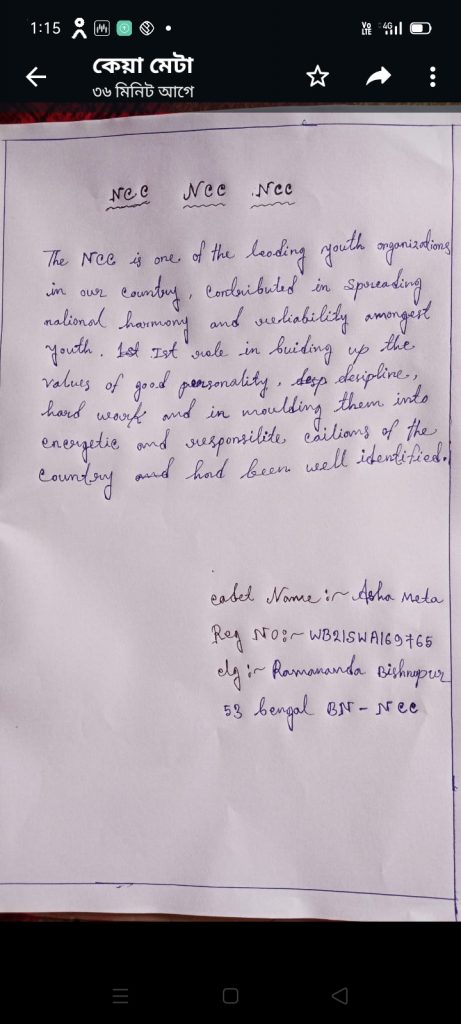 1:15
Vo LTE 4G
কেয়া মেটা
৩৬ মিনিট আগে
NCC NCC NCC
The NCC is one of the leading youth organizations
in our country, Contributed in Spreading
national harmony and reliability amongest
youth. 1st Ist role in buiding up the
values of good personality, desp desipline,
hard work and in moulding them into
energetic and responsilite citizens of the
country and had been well identified.
cadet Name :- Asha Meta
Reg NO :- WB21SWA169765
clg :- Ramananda Bishnupur
53 bengal BN - NCC